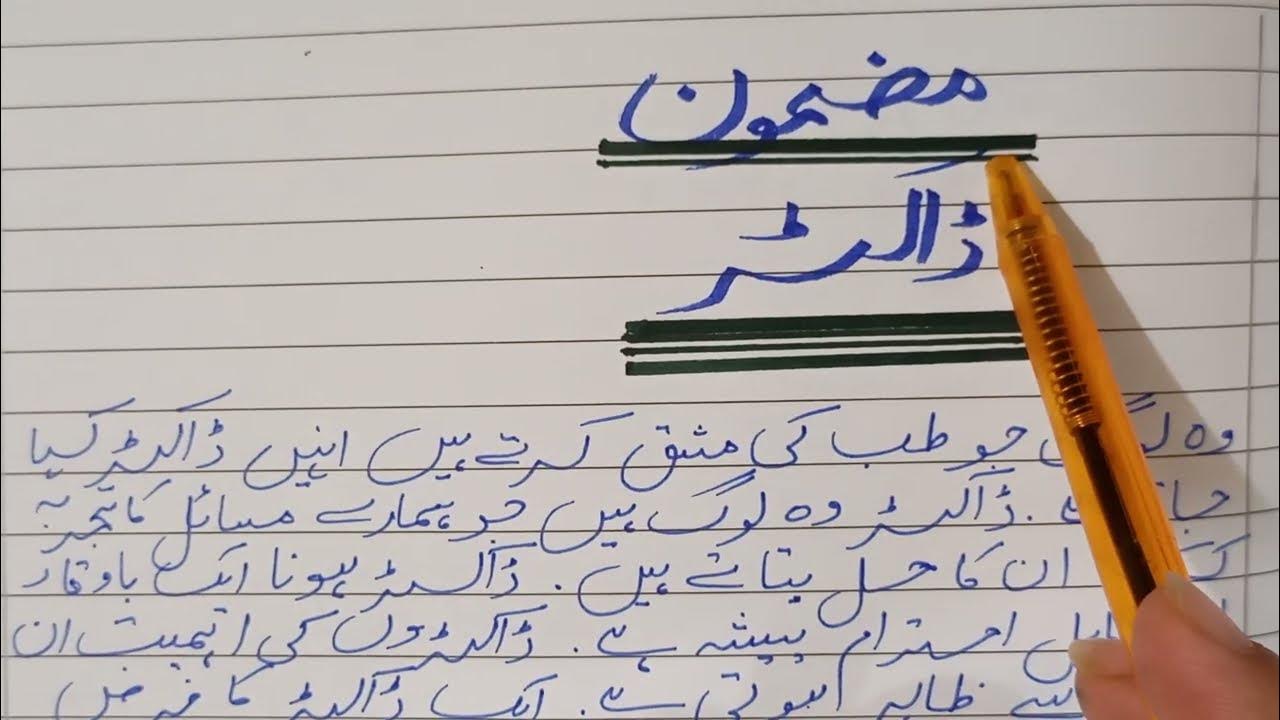 مضمون
ڈاکٹر
وہ جو طب کی مثق کرتے ہیں انہیں ڈاکٹر کہا
ڈاکٹر وہ لوگ ہیں جو ہمارے مسائل کا تجزیہ
ان کا حل بتاتے ہیں. ڈاکٹر ہونا ایک باوقار
احترام پیشہ ہے. ڈاکٹروں کی اہمیت ان
سے ظاہر ہوتی ہے. ایک ڈاکٹر کا فرض